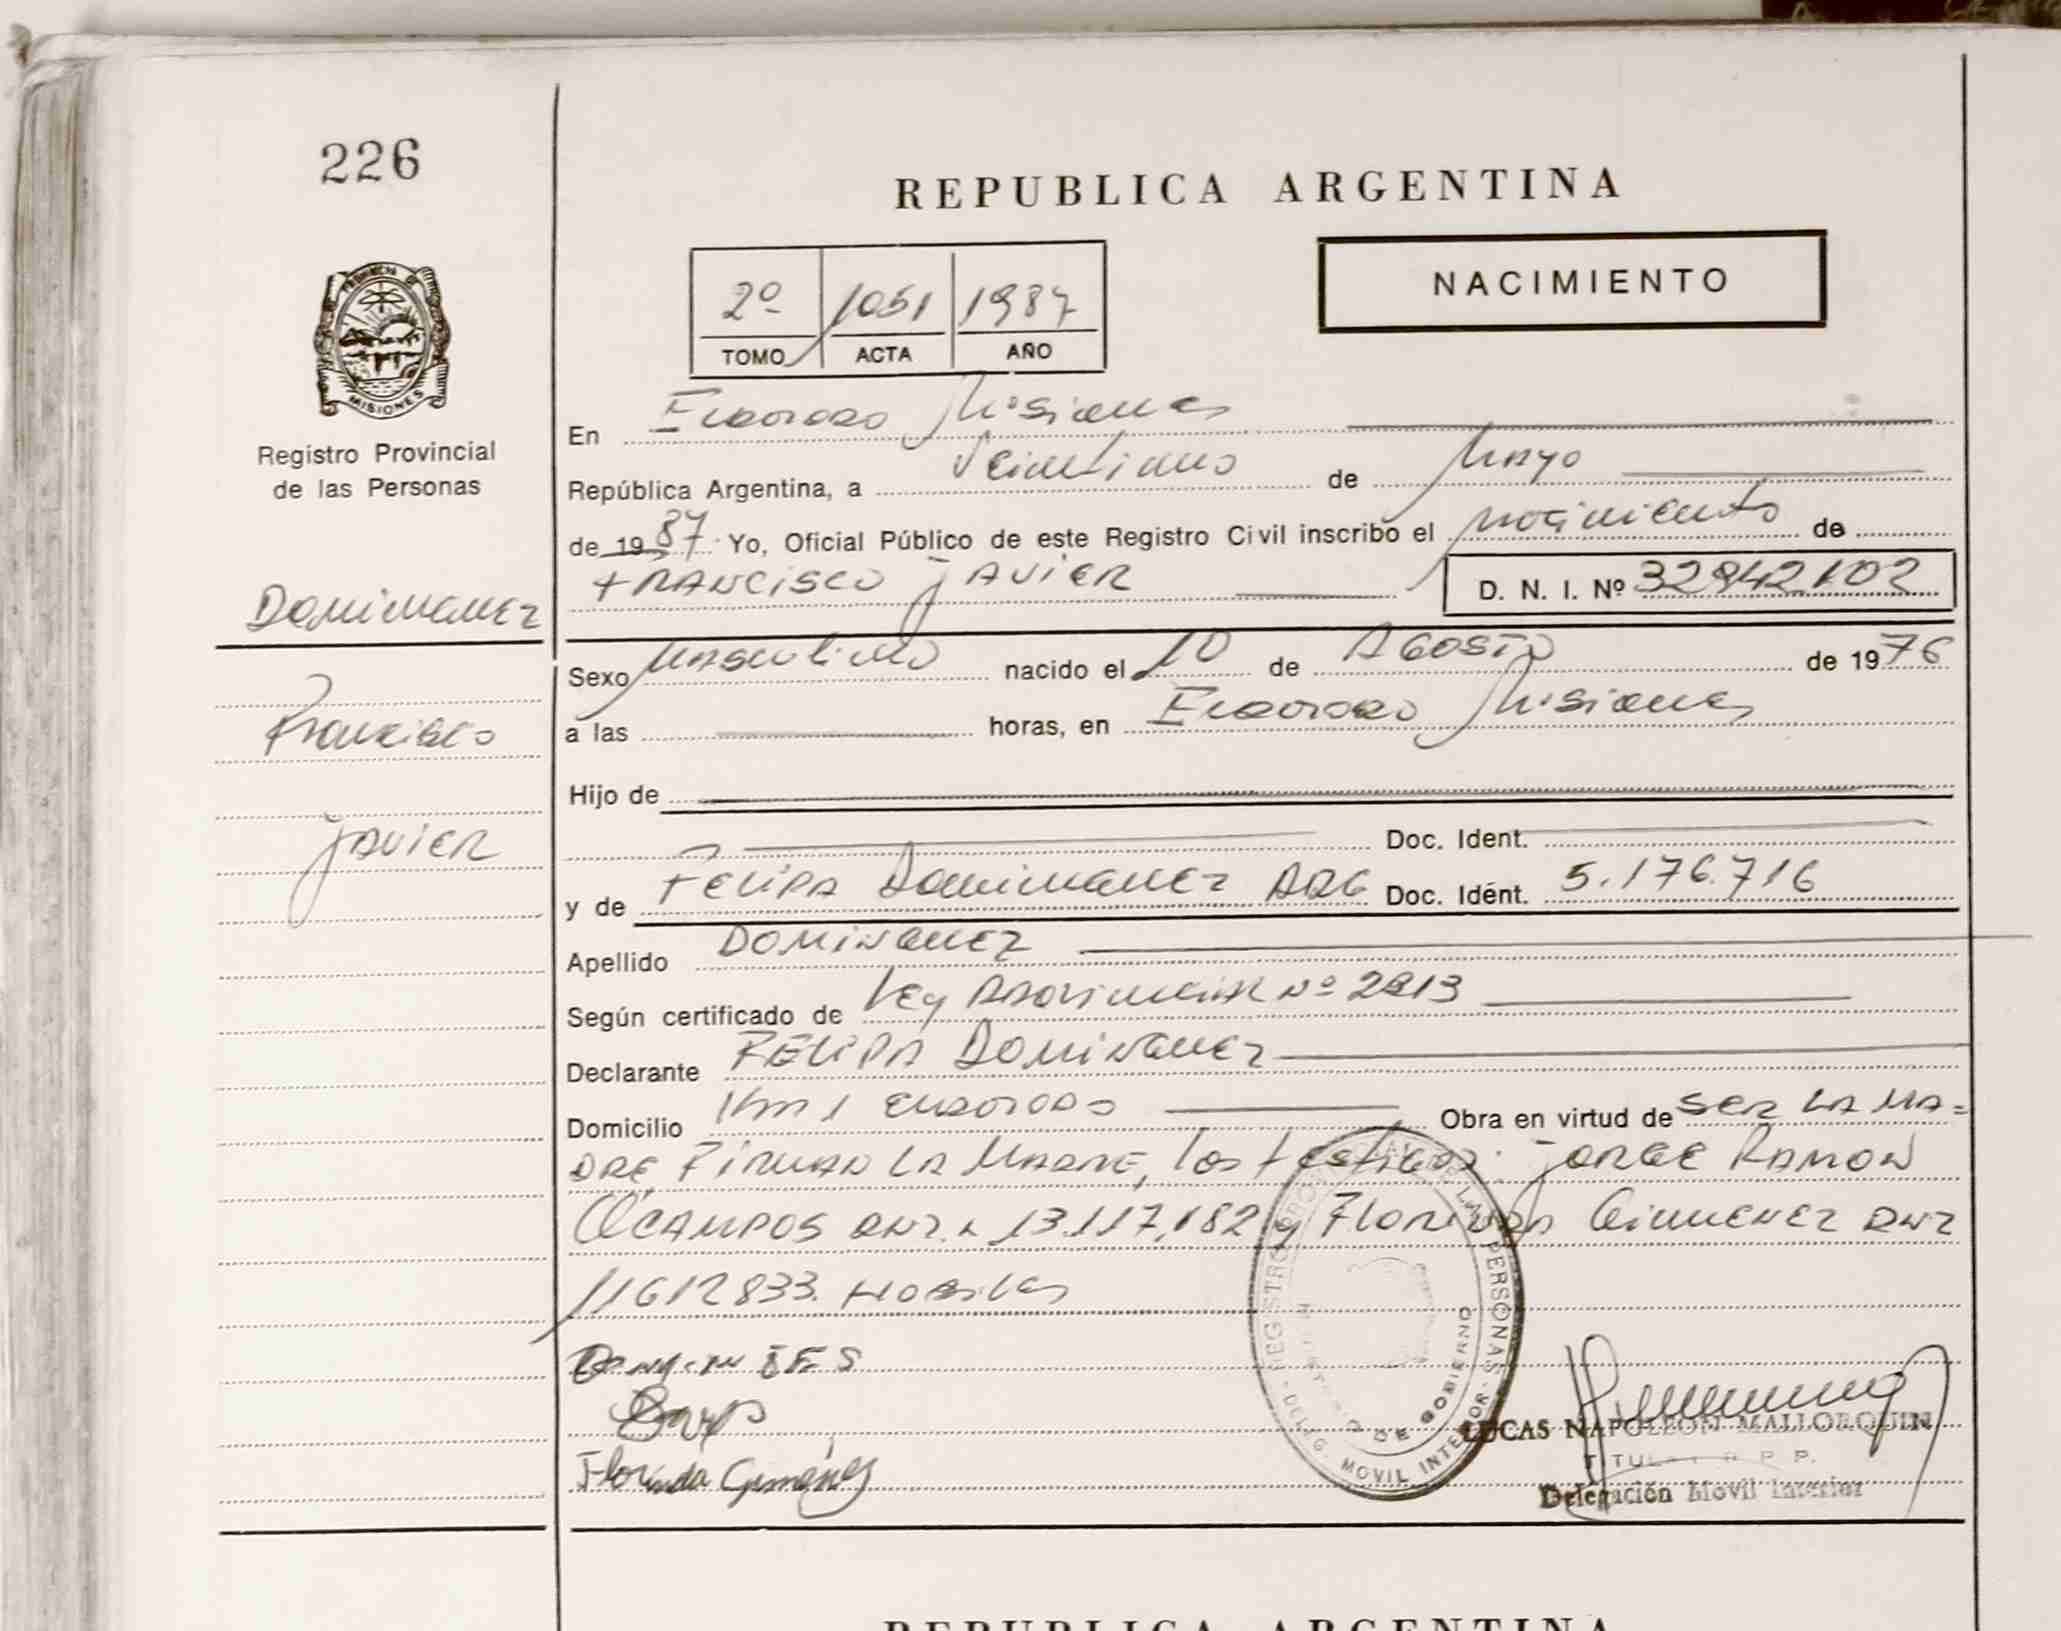 226
REPUBLICA ARGENTINA
2º 1051 1987
TOMO ACTA AÑO
NACIMIENTO
PROVINCIA DE
MISIONES
Registro Provincial
de las Personas
En Eldorado Misiones
República Argentina, a Veintiuno de Mayo
de 1987 Yo, Oficial Público de este Registro Civil inscribo el nacimiento de
FRANCISCO JAVIER D. N. I. Nº 32842102
Dominguez
Sexo Masculino nacido el 10 de Agosto de 1976
Francisco
a las horas, en Eldorado Misiones
Hijo de
Javier
Doc. Ident.
y de Felipa Dominguez ARG Doc. Idént. 5.176.716
Apellido DOMINGUEZ
Según certificado de Ley Provincial Nº 2813
Declarante FELIPA DOMINGUEZ
Domicilio Km 1 Eldorado Obra en virtud de SER LA MA=
DRE, FIRMAN LA MADRE, los testigos: JORGE RAMON
OCAMPOS DNI. n 13.117.182 y Florinda Gimenez DNI
11612833. Habiles
REGISTRO PERSONAS
DELEG. MOVIL INTERIOR
DE GOBIERNO
Florinda Gimenez
LUCAS NAPOLEON MALLORQUIN
TITULAR R. P. P.
Delegación Movil Interior
REPUBLICA ARGENTINA